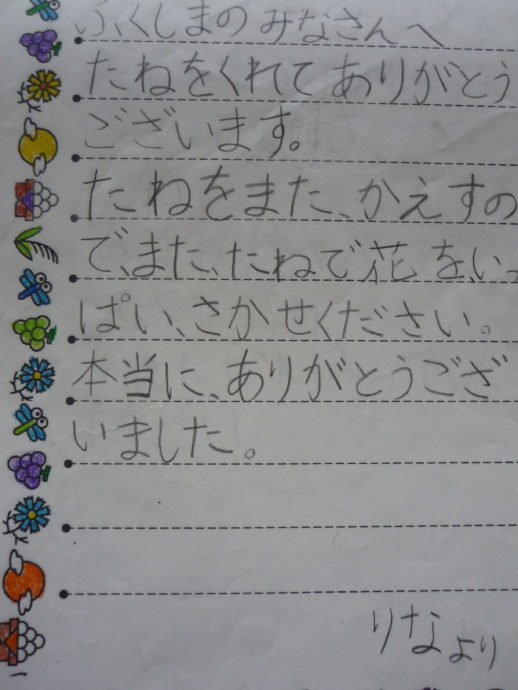 ふくしまのみなさんへ
たねをくれてありがとう
ございます。
たねをまた、かえすの
で、また、たねで花を、いっ
ぱい、さかせください。
本当に、ありがとうござ
いました。
りなより